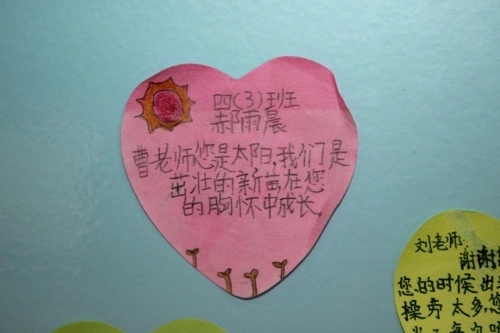 四(3)班
郝雨晨
曹老师您是太阳,我们是
茁壮的新苗在您
的胸怀中成长。
刘老师:
谢谢
您的时候出
操劳太多,您